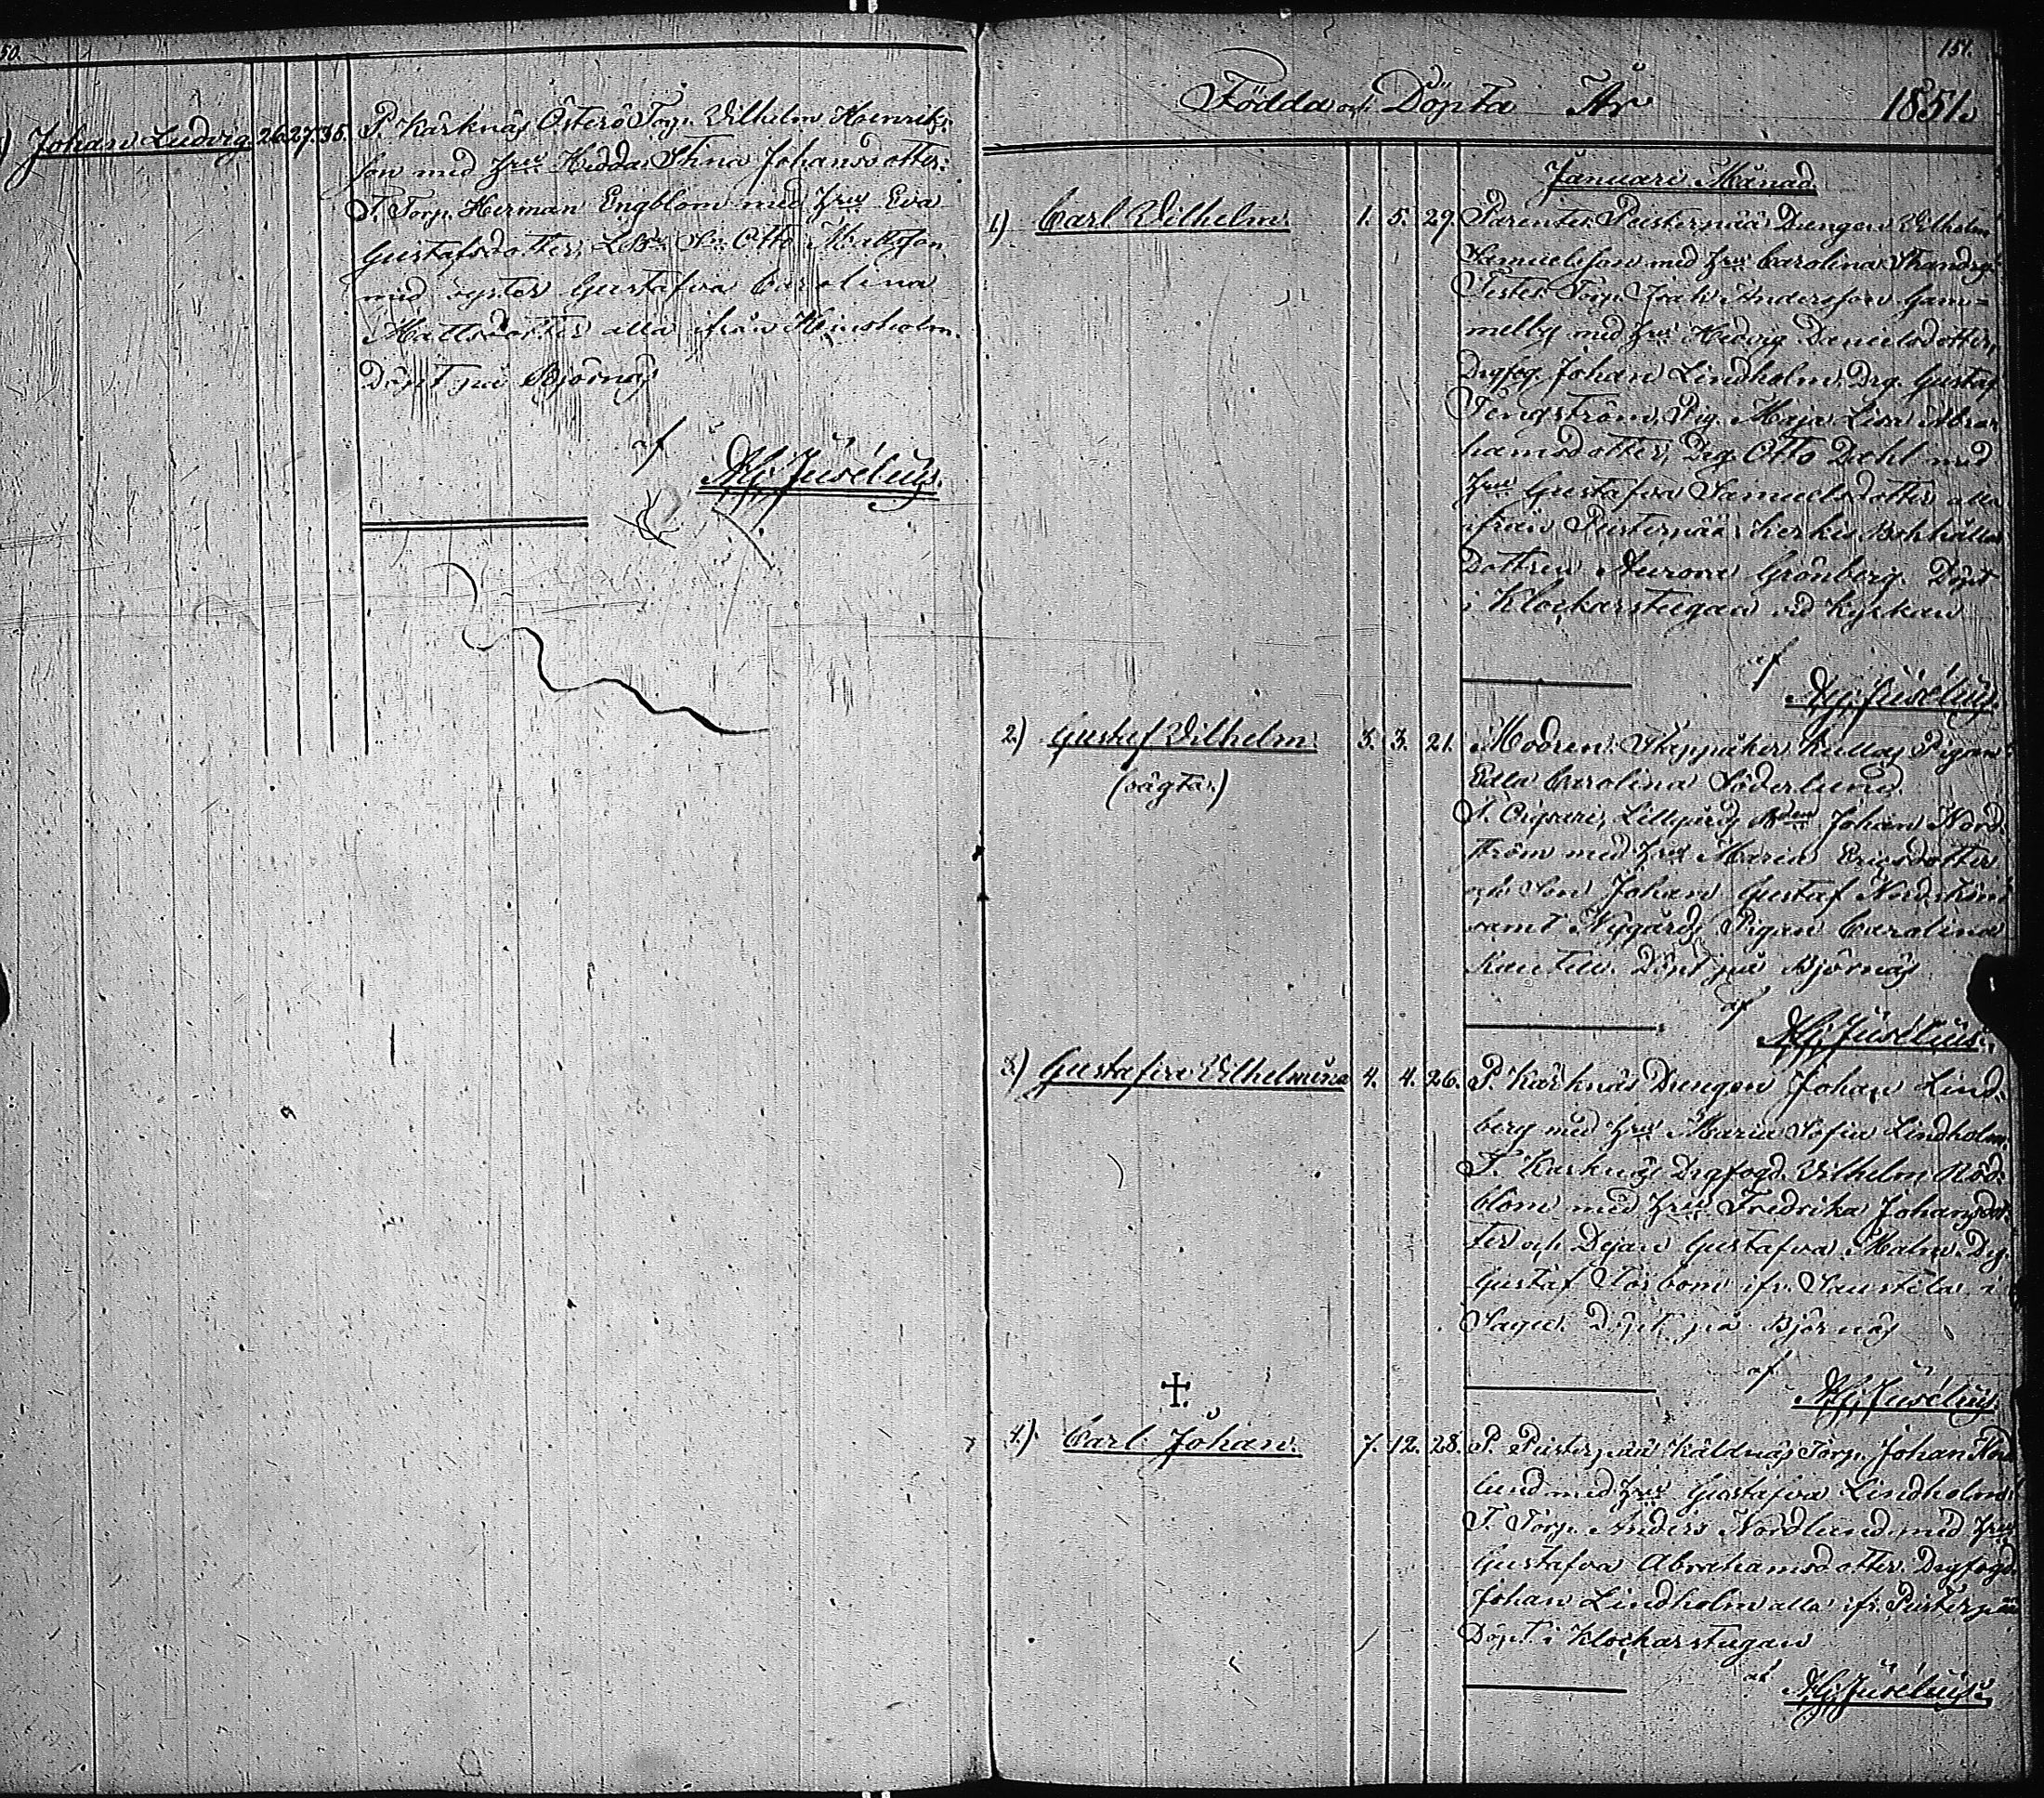 50.
Johan Ludvig 26. 27. 35. P. Karknäs Österö Torp. Vilhelm Heinriks-
son med hru Hedda Stina Johansdotter.
T. Torp. Herman Engblom med hru Eva
Gustafsdotter, Otto Mattsson
med syster Gustafva Carolina
Mattsdotter alla ifrån
Döpt på Björnäs
af
Hj. Jusélius.
151.
Födda och Döpta År 1851.
Januari Månad.
1) Carl Vilhelm 1. 5. 29. Parentes Peisterpää Drengen Vilhelm
Samuelsson med hru Carolina
Testes Torp. Isak Andersson Gam=
melby med hru Hedvig Danielsdotter,
Drgfog. Johan Lindholm, Drg. Gustaf
Tengström, Pig. Maja Lisa Abra-
hamsdotter, Drg. Otto Dahl med
hru Gustafva Samuelsdotter alla
ifrån Peisterpää,
Dottren Aurora Grönberg. Döpt
i Klockarstugan vid Kyrkan
af
Hj. Jusélius.
2) Gustaf Vilhelm 3. 3. 21. Modren Pigan
(oägta) Edla Carolina Söderlund
T. Lillgårds Johan Nord-
ström med hru Maria Ericsdotter
och Son Johan Gustaf Nordström
samt Nygårds Pigan Carolina
Döpt på Björnäs
af
Hj. Jusélius.
3) Gustafva Vilhelmina 4. 4. 26. P. Karknäs Drengen Johan Lind-
berg med hru Maria Sofia Lindholm.
T. Karknäs Drgfogd. Vilhelm Röd-
blom med hru Fredrika Johansdot-
ter och Dejan Gustafva Malm. Drg.
Gustaf ifr. Saustila i
Sagu. Döpt på Björnäs
af
Hj. Jusélius.
†.
4) Carl Johan. 7. 12. 28. P. Peisterpää Käldnäs Torp. Johan Nord-
lund med hru Gustafva Lindholm
T. Torp. Anders Nordlund med hru
Gustafva Abrahamsdotter. Drgfogd.
Johan Lindholm alla ifr. Peisterpää
Döpt i Klockarstugan
af
Hj. Jusélius.